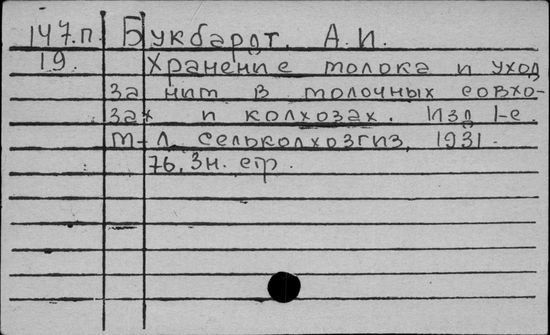 147.п. Букбардт. А.И.
19 Хранение молока и уход
за ним в молочных совхо-
зах и колхозах. Изд 1-е.
М-Л. Сельколхозгиз, 1931.
76, 3н. стр.